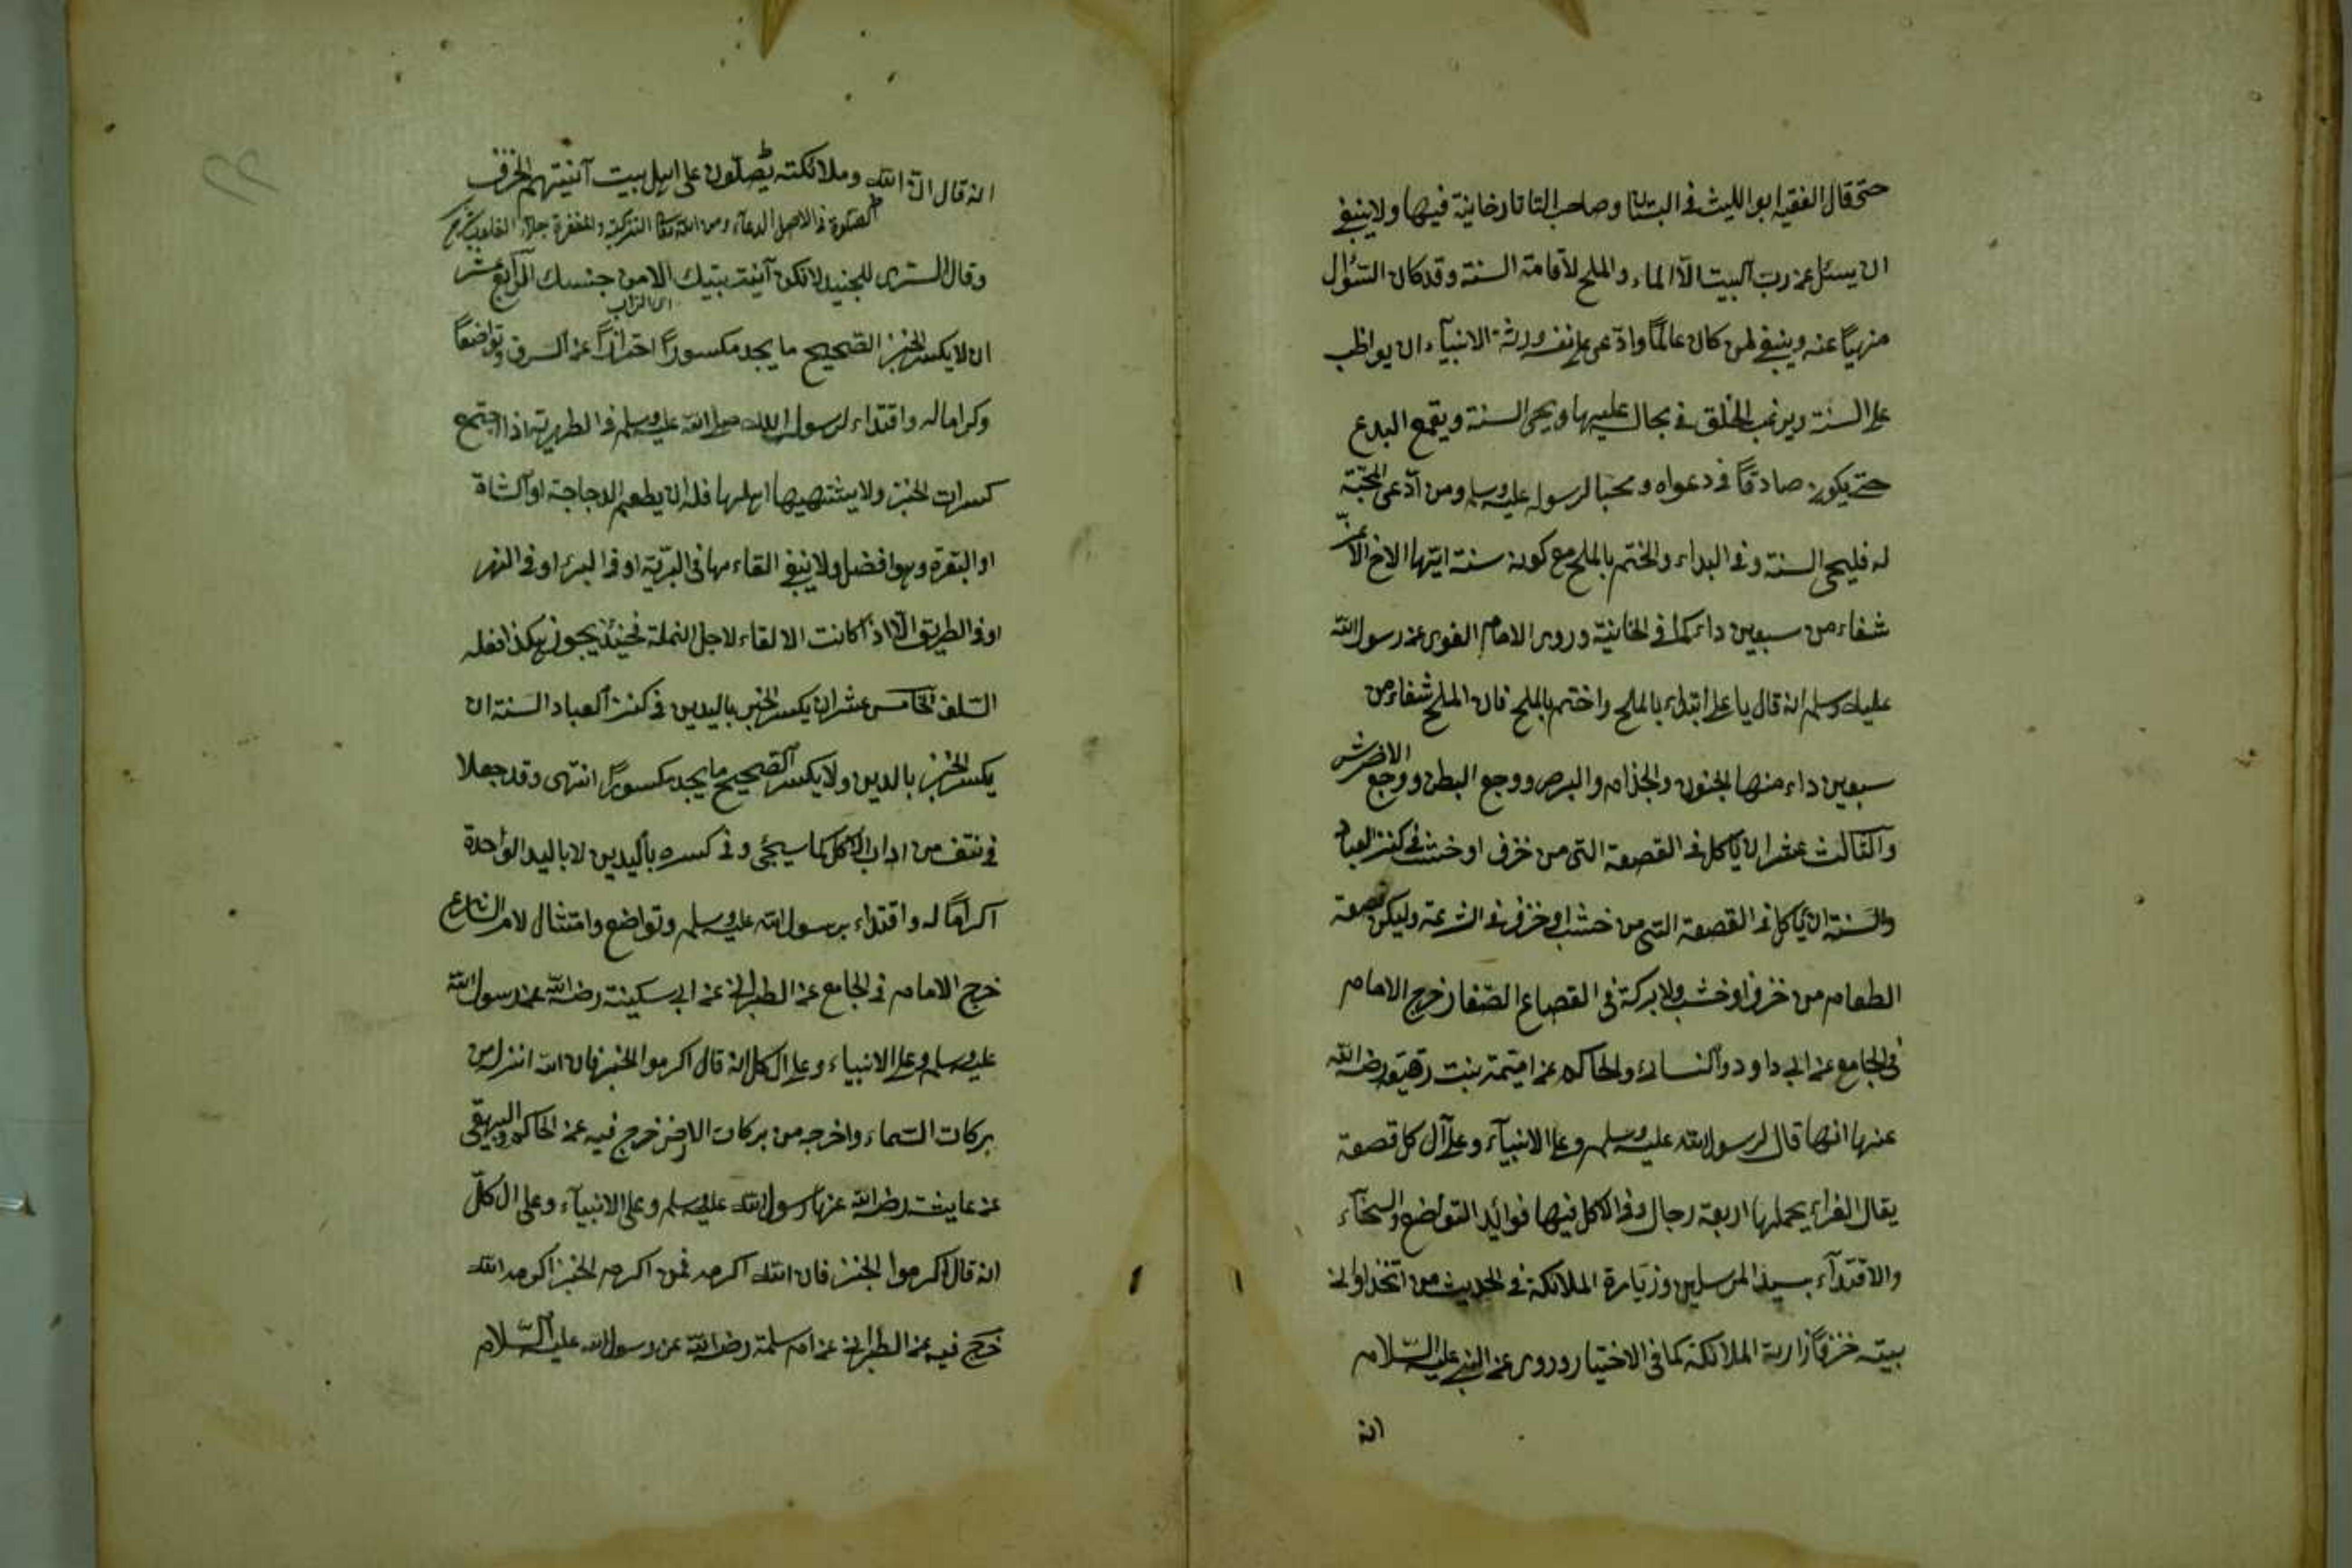 حتى قال الفقيه ابو الليث فى البستان وصاحب التاتارخانية فيها ولا ينبغى
ان يسئل عن رب البيت الا الماء والملح لاقامة السنة وقد كان السؤال
منهيا عنه وينبغى لمن كان عالما وادعى على نفسه ورثة الانبياء ان يواظب
على السنة ويرغب الخلق فى بحال عليها ويحى السنة ويقمع البدع
حتى يكون صادقا فى دعواه ومحبا لرسول عليه وسلم ومن ادعى المحبة
له فليحى السنة وفى البداء والختم بالملح مع كونه سنة ايتها الاخ الاعز
شفاء من سبعين داء كما فى الخانية وروى الامام الغوى عن رسول الله
عليه وسلم انه قال يا على ابتداء بالملح واختم بالملح فان الملح شفاء من
سبعين داء منها الجنون والجذام والبرص ووجع البطن ووجع الاضراس
والثالث عشر ان ياكل فى القصعة التى من خزف او خشب فى كنز العباد
والسنة ان ياكل فى القصعة التى من خشب او خزف فى الشرعة وليكن قصعة
الطعام من خزف او خشب ولا بركة فى القصاع الصغار خرج الامام
فى الجامع عن ابى داود والنساء والحاكم عن اميمة بنت رقيقة رضى الله
عنها انها قال لرسول الله عليه وسلم وعلى الانبياء وعلى آل كل قصعة
يقال الغراء يحملها اربعة رجال وفى الاكل فيها فوائد التواضع والسخاء
والاقتداء بسيد المرسلين وزيارة الملائكة فى الحديث من اتخذ اوانى
بيته خزفا زارته الملائكة كما فى الاختيار وروى عن النبى عليه السلام
انه
انه قال ان الله وملائكته يصلون على اهل بيت آنيتهم الخزف
الصلوة فى الاصل الدعاء ومن الله تعالى التزكية والمغفرة
وقال السترى للجنيد لا تكن آنية بيتك الا من جنسك الرابع عشر
اى التراب
ان لا يكسر الخبز الصحيح ما يجد مكسورا احترازا عن السرف وتواضعا
وكراما له واقتداء لرسول الله صلى الله عليه وسلم فى الطريرية اذا اجتمع
كسرات الخبز ولا يشتهيها اهلها فله ان يطعم الدجاجة او الشاة
او البقرة وهو افضل ولا ينبغى القاءمها فى البرية او فى البئر او فى النهر
او فى الطريق الا اذا كانت الالقاء لاجل النملة فحينئذ يجوز هكذا فعله
السلف الخامس عشر ان يكسر الخبز باليدين فى كنز العباد السنة ان
يكسر الخبز باليدين ولا يكسر الصحيح ما يجد مكسورا انتهى وقد جعلا
فى نتف من اداب الاكل كما سيجئ وفى كسره باليدين لا باليد الواحدة
اكراما له واقتداء برسول الله عليه وسلم وتواضع وامتثال لامر الشارع
خرج الامام فى الجامع عن الطبرانى عن ابى سكينة رضى الله عنه رسول الله
عليه وسلم وعلى الانبياء وعلى ال كل انه قال اكرموا الخبز فان الله انزل من
بركات السماء واخرجه من بركات الارض خرج فيه عن الحاكم والبيهقى
عن عايشة رضى الله عنها رسول الله عليه وسلم وعلى الانبياء وعلى ال كل
انه قال اكرموا الخبز فان الله اكرمه فمن اكرم الخبز اكرمه الله
خرج فيه عن الطبرانى عن ام سلمة رضى الله عن رسول الله عليه السلام